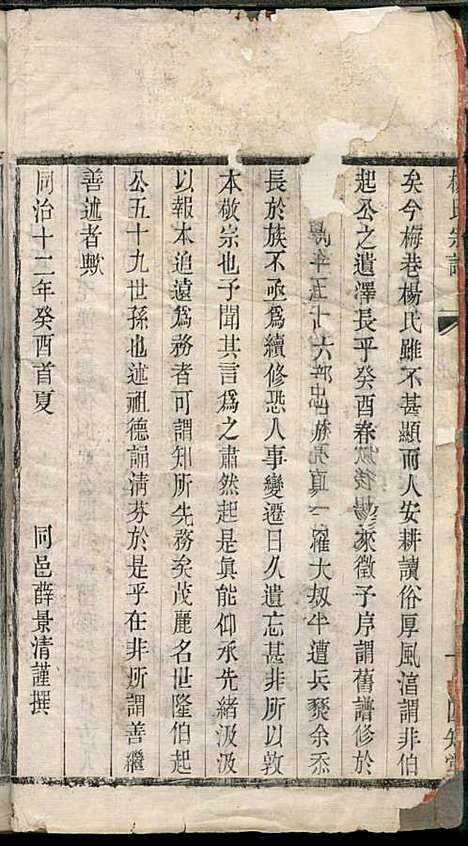 楊氏宗譜
四知堂
矣今梅巷楊氏雖不甚顯而人安耕讀俗厚風湻謂非伯
起公之遺澤長乎癸酉春 後 來徵予序謂舊譜修於
五十六 族 真一罹大刼半遭兵燹余忝
長於族不亟爲續修恐人事變遷日久遺忘甚非所以敦
本敬宗也予聞其言爲之肅然起是真能仰承先緒汲汲
以報本追遠爲務者可謂知所先務矣茂麗名世隆伯起
公五十九世孫也述祖德誦淸芬於是乎在非所謂善繼
善述者歟
同治十二年癸酉首夏 同邑薛景清謹撰